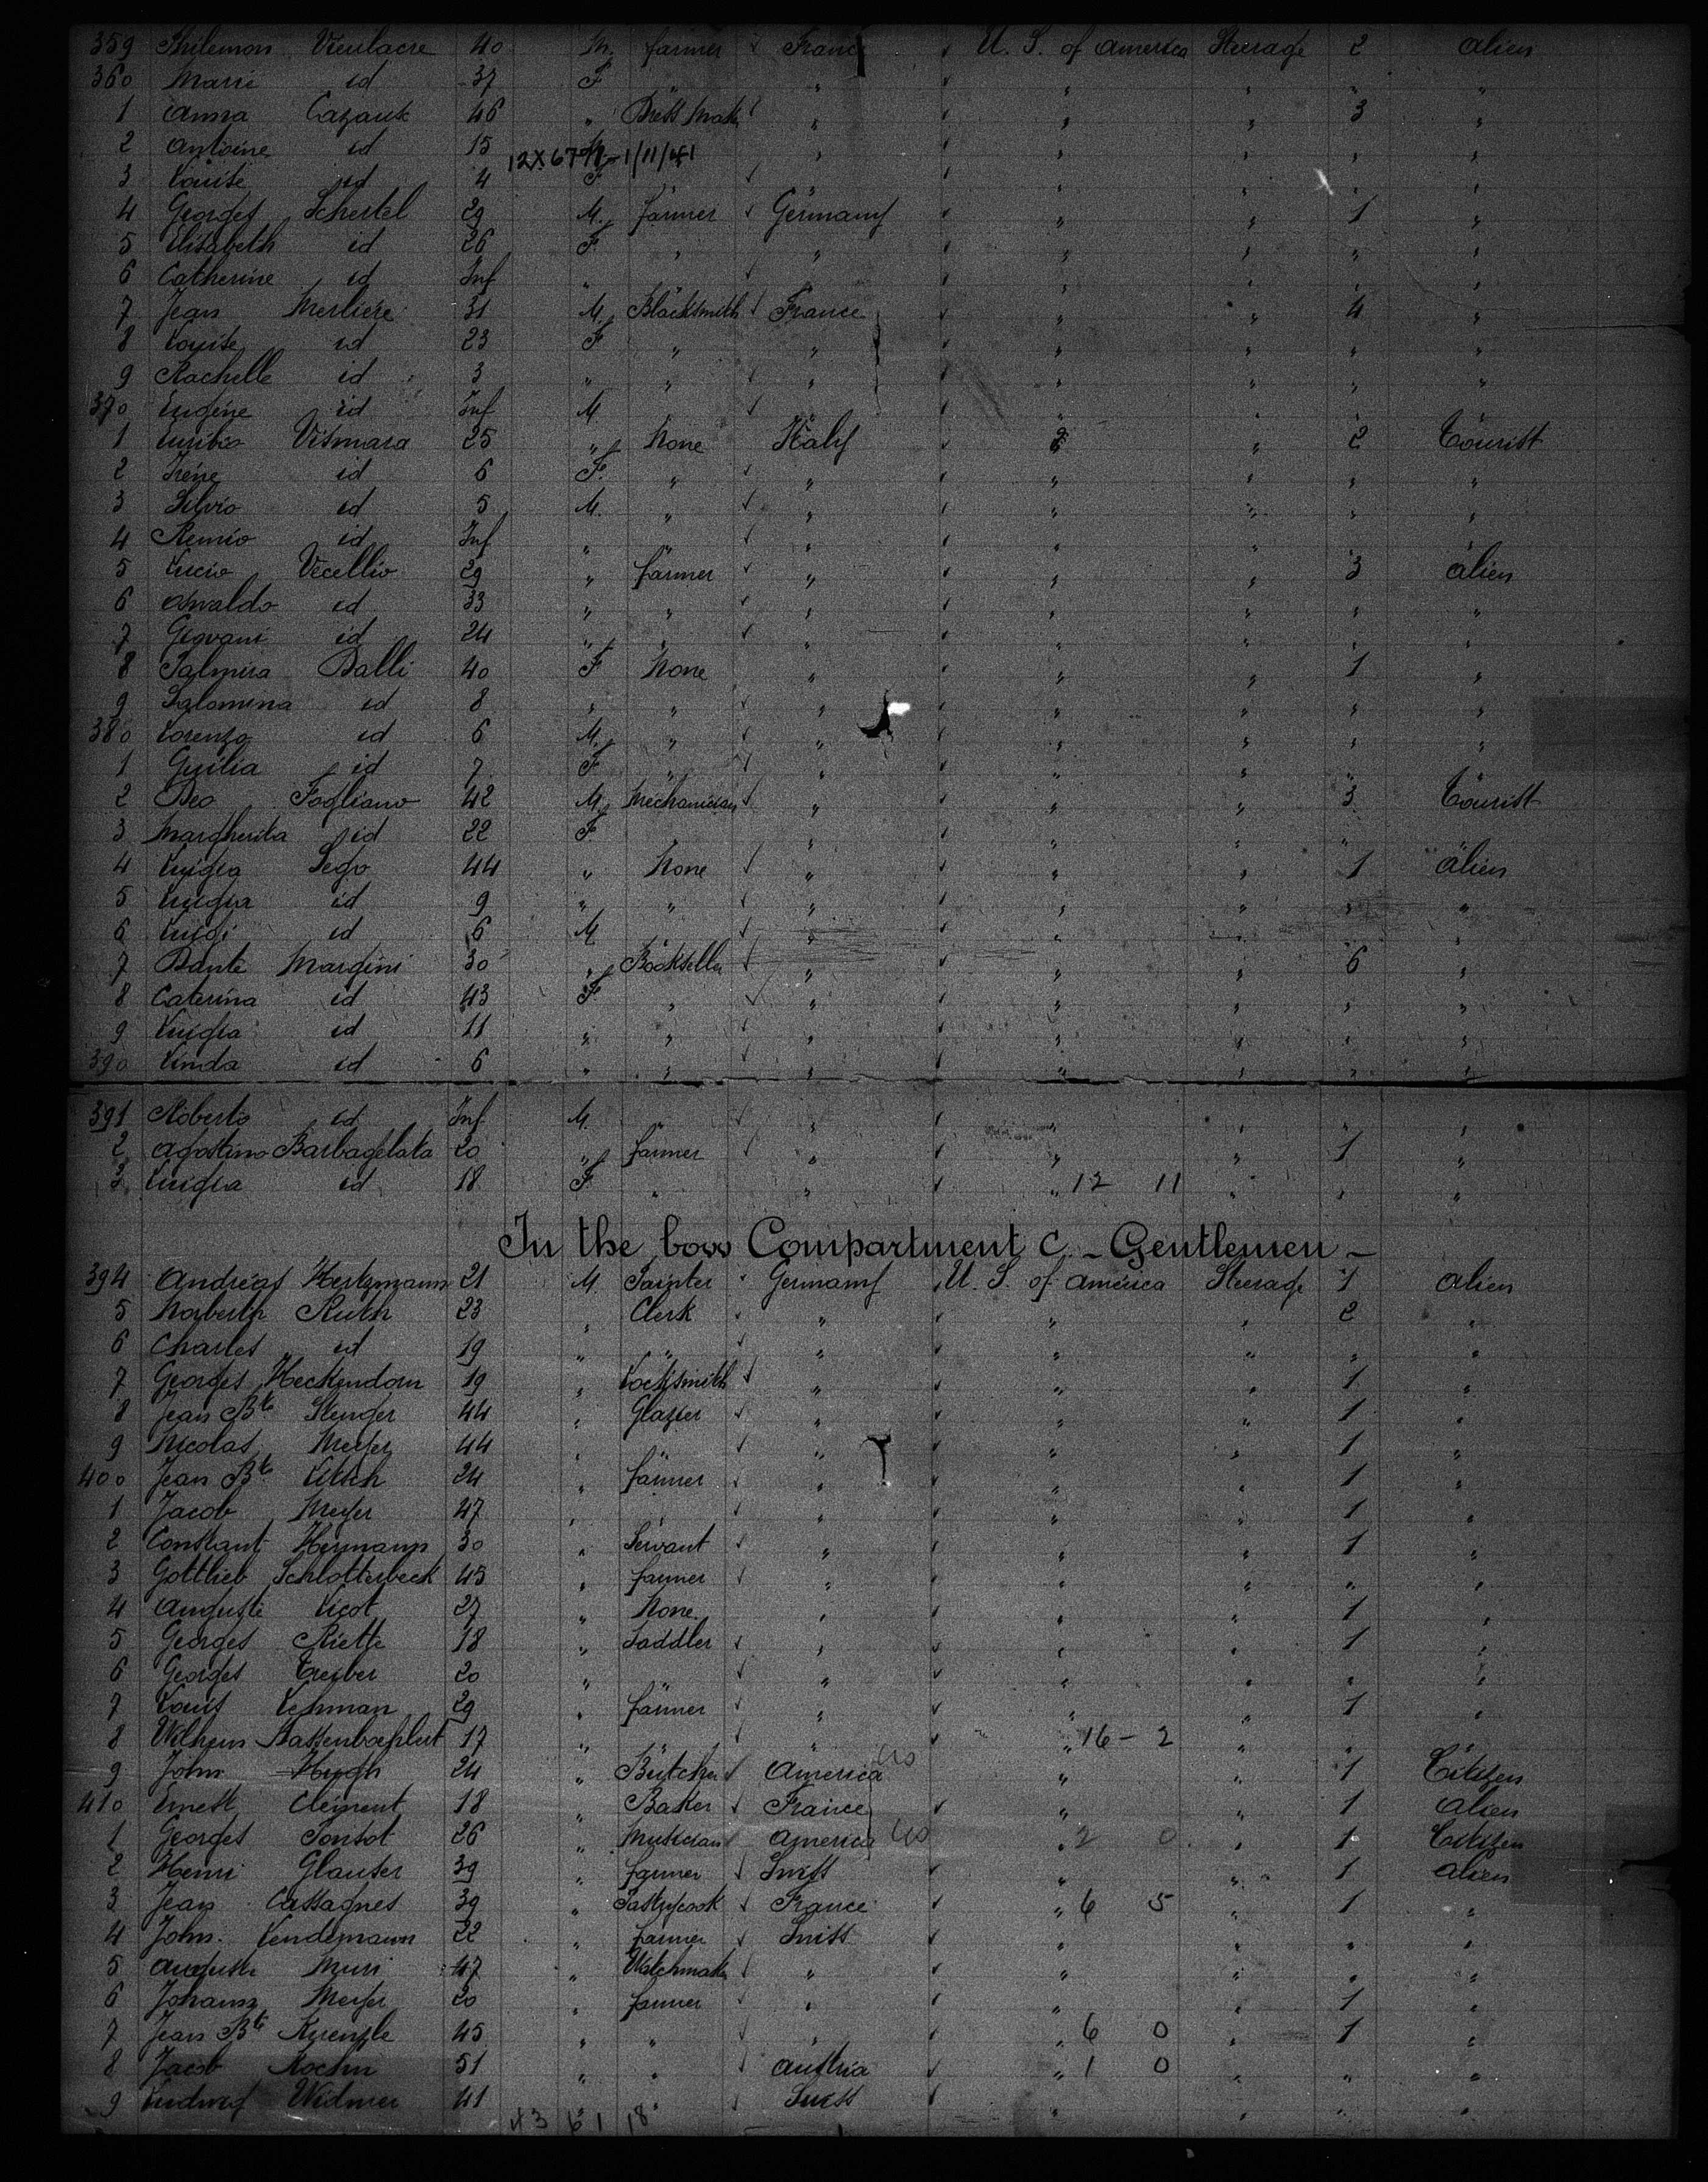 359 Philemon Vieulacre 40 M. farmer France U. S. of america Steerage 2 alien
360 Marie id 37 F " " " " "
1 Anna Cazaux 46 " Dress Mak. " " " 3 "
2 Antoine id 15 M. " " " " "
12X67 1/11/41
3 Louise id 4 F " " " " "
4 Georges Schertel 29 M. farmer Germany " " 1 "
5 Elisabeth id 26 F. " " " " " "
6 Catherine id Inf " " " " " "
7 Jean Merliere 31 M. Blacksmith France " " 4 "
8 Louise id 23 F " " " " " "
9 Rachelle id 3 " " " " " " "
370 Eugène id Inf M. " " " " "
1 Vismara 25 " None Italy " " 2 Tourist
2 Irène id 6 F. " " " " " "
3 Silvio id 5 M. " " " " " "
4 Remio id Inf " " " " " "
5 Lucio Vecellio 29 " farmer " " " 3 alien
6 Osvaldo id 33 " " " " " " "
7 Giovani id 24 " " " " " " "
8 Palmira Balli 40 F None " " " 1 "
9 Salomina id 8 " " " " " " "
380 Lorenzo id 6 M. " " " " " "
1 Guilia id 7 F " " " " " "
2 Deo Fogliano 42 M. Mechanician " " " 3 Tourist
3 Margherita id 22 F. " " " " "
4 Luigia Sego 44 " None " " " 1 alien
5 Luigia id 9 " " " " " " "
6 Luigi id 6 M " " " " "
7 Dante Margini 30 " Bookseller " " " 6 "
8 Caterina id 43 F " " " " " "
9 Luigia id 11 " " " " " " "
390 Linda id 6 " " " " " " "
391 Roberto id Inf M. " " " " "
2 Agostino Barbagelata 20 " farmer " " " 1 "
3 Luigia id 18 F " " " 12 11 " " "
In the bow Compartment C. - Gentlemen -
394 Andreas Hertzmann 21 M. Painter Germany U. S. of america Steerage 1 alien
5 Norberth Ruth 23 " Clerk " " " 2 "
6 Charles id 19 " " " " " " "
7 Georges Heckendorn 19 " Locksmith " " " 1 "
8 Jean Bte Stenger 44 " Glazier " " " 1 "
9 Nicolas Meyer 44 " " " " 1 "
400 Jean Bte Litsch 24 " farmer " " " 1 "
1 Jacob Meyer 47 " " " " 1 "
2 Constant Hermann 30 " Servant " " " 1 "
3 Gottlieb Schlotterbeck 45 " farmer " " " " "
4 Auguste Licot 27 " None " " " 1 "
5 Georges Riette 18 " Saddler " " " 1 "
6 Georges Treiber 20 " " " " " "
7 Louis Lehman 29 " farmer " " " 1 "
8 Wilhem 17 " " " " 16 - 2 " " "
9 John Hugh 24 " Butcher America " " 1 Citizen
410 Ernest Clement 18 " Baker France " " 1 alien
1 Georges Ponsot 26 " Musician America " 2 0 " 1 Citizen
2 Henri Glauser 39 " farmer Swiss " " 1 alien
3 Jean Cassagnes 39 " Pastrycook France " 6 5 " 1 "
4 John. Lendemann 22 " farmer Swiss " " " "
5 Auguste Muri 47 " Watchmaker " " " " "
6 Johann Meyer 20 " farmer " " " 1 "
7 Jean Bte Kuenzle 45 " " " " 6 0 " 1 "
8 Jacob Roehm 51 " " austria " 1 0 " " "
9 Ludwig Widmer 41 " " Swiss " " " "
43 6 1 18